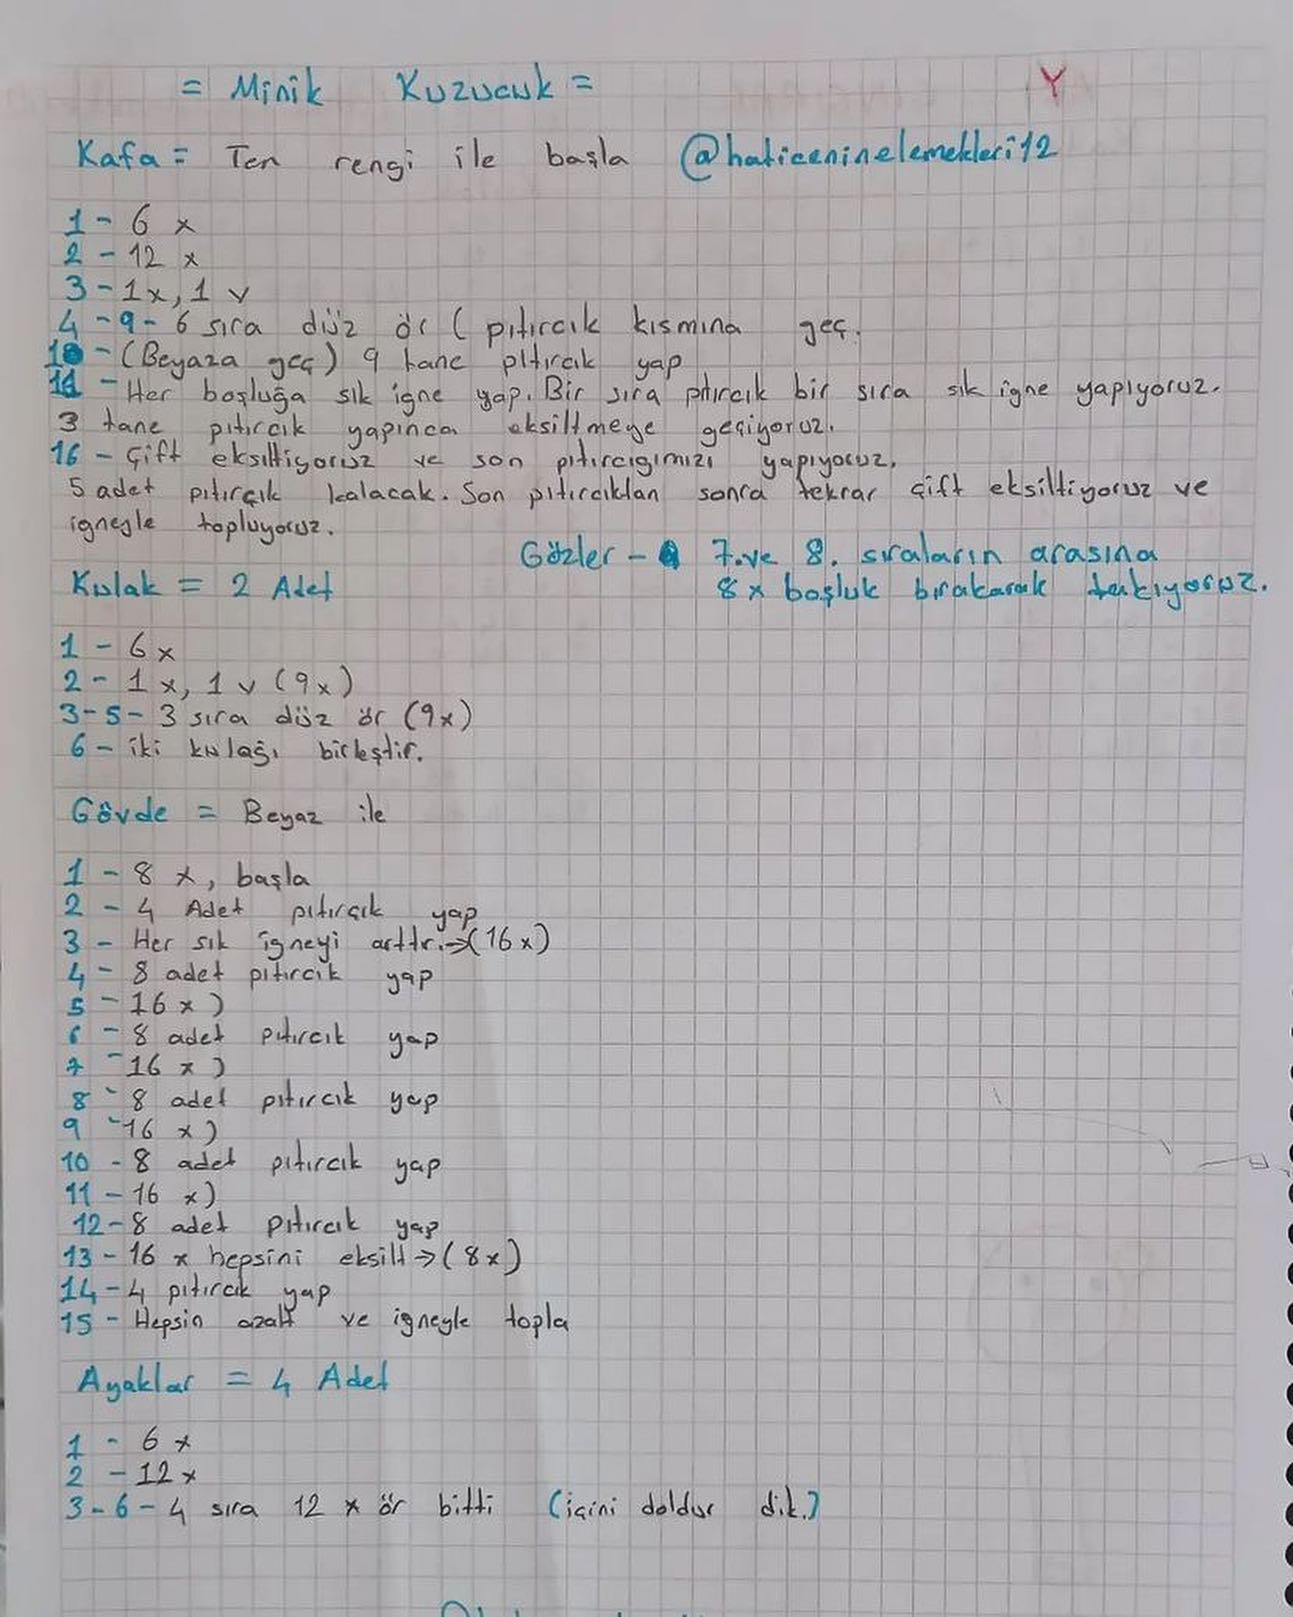 = Minik Kuzucuk =
Y
Kafa = Ten rengi ile başla @haticeninelemekleri12
1 - 6 x
2 - 12 x
3 - 1x, 1 v
4 - 9 - 6 sıra düz ör ( pıtırcık kısmına geç.
10 - (Beyaza geç) 9 tane pıtırcık yap
11 - Her boşluğa sık iğne yap. Bir sıra pıtırcık bir sıra sık iğne yapıyoruz.
3 tane pıtırcık yapınca eksiltmeye geçiyoruz.
16 - Çift eksiltiyoruz ve son pıtırcığımızı yapıyoruz.
5 adet pıtırçık kalacak. Son pıtırcıktan sonra tekrar çift eksiltiyoruz ve
iğneyle topluyoruz.
Gözler - 7. ve 8. sıraların arasına
8 x boşluk bırakarak takıyoruz.
Kulak = 2 Adet
1 - 6 x
2 - 1 x, 1 v (9x)
3 - 5 - 3 sıra düz ör (9x)
6 - iki kulağı birleştir.
Gövde = Beyaz ile
1 - 8 x, başla
2 - 4 Adet pıtırçık yap
3 - Her sık iğneyi arttır. → (16 x)
4 - 8 adet pıtırcık yap
5 - 16 x )
6 - 8 adet pıtırcık yap
7 - 16 x )
8 - 8 adet pıtırcık yap
9 - 16 x )
10 - 8 adet pıtırcık yap
11 - 16 x )
12 - 8 adet pıtırcık yap
13 - 16 x hepsini eksilt → ( 8x )
14 - 4 pıtırcık yap
15 - Hepsin azalt ve iğneyle topla
Ayaklar = 4 Adet
1 - 6 x
2 - 12 x
3 - 6 - 4 sıra 12 x ör bitti (içini doldur dik.)